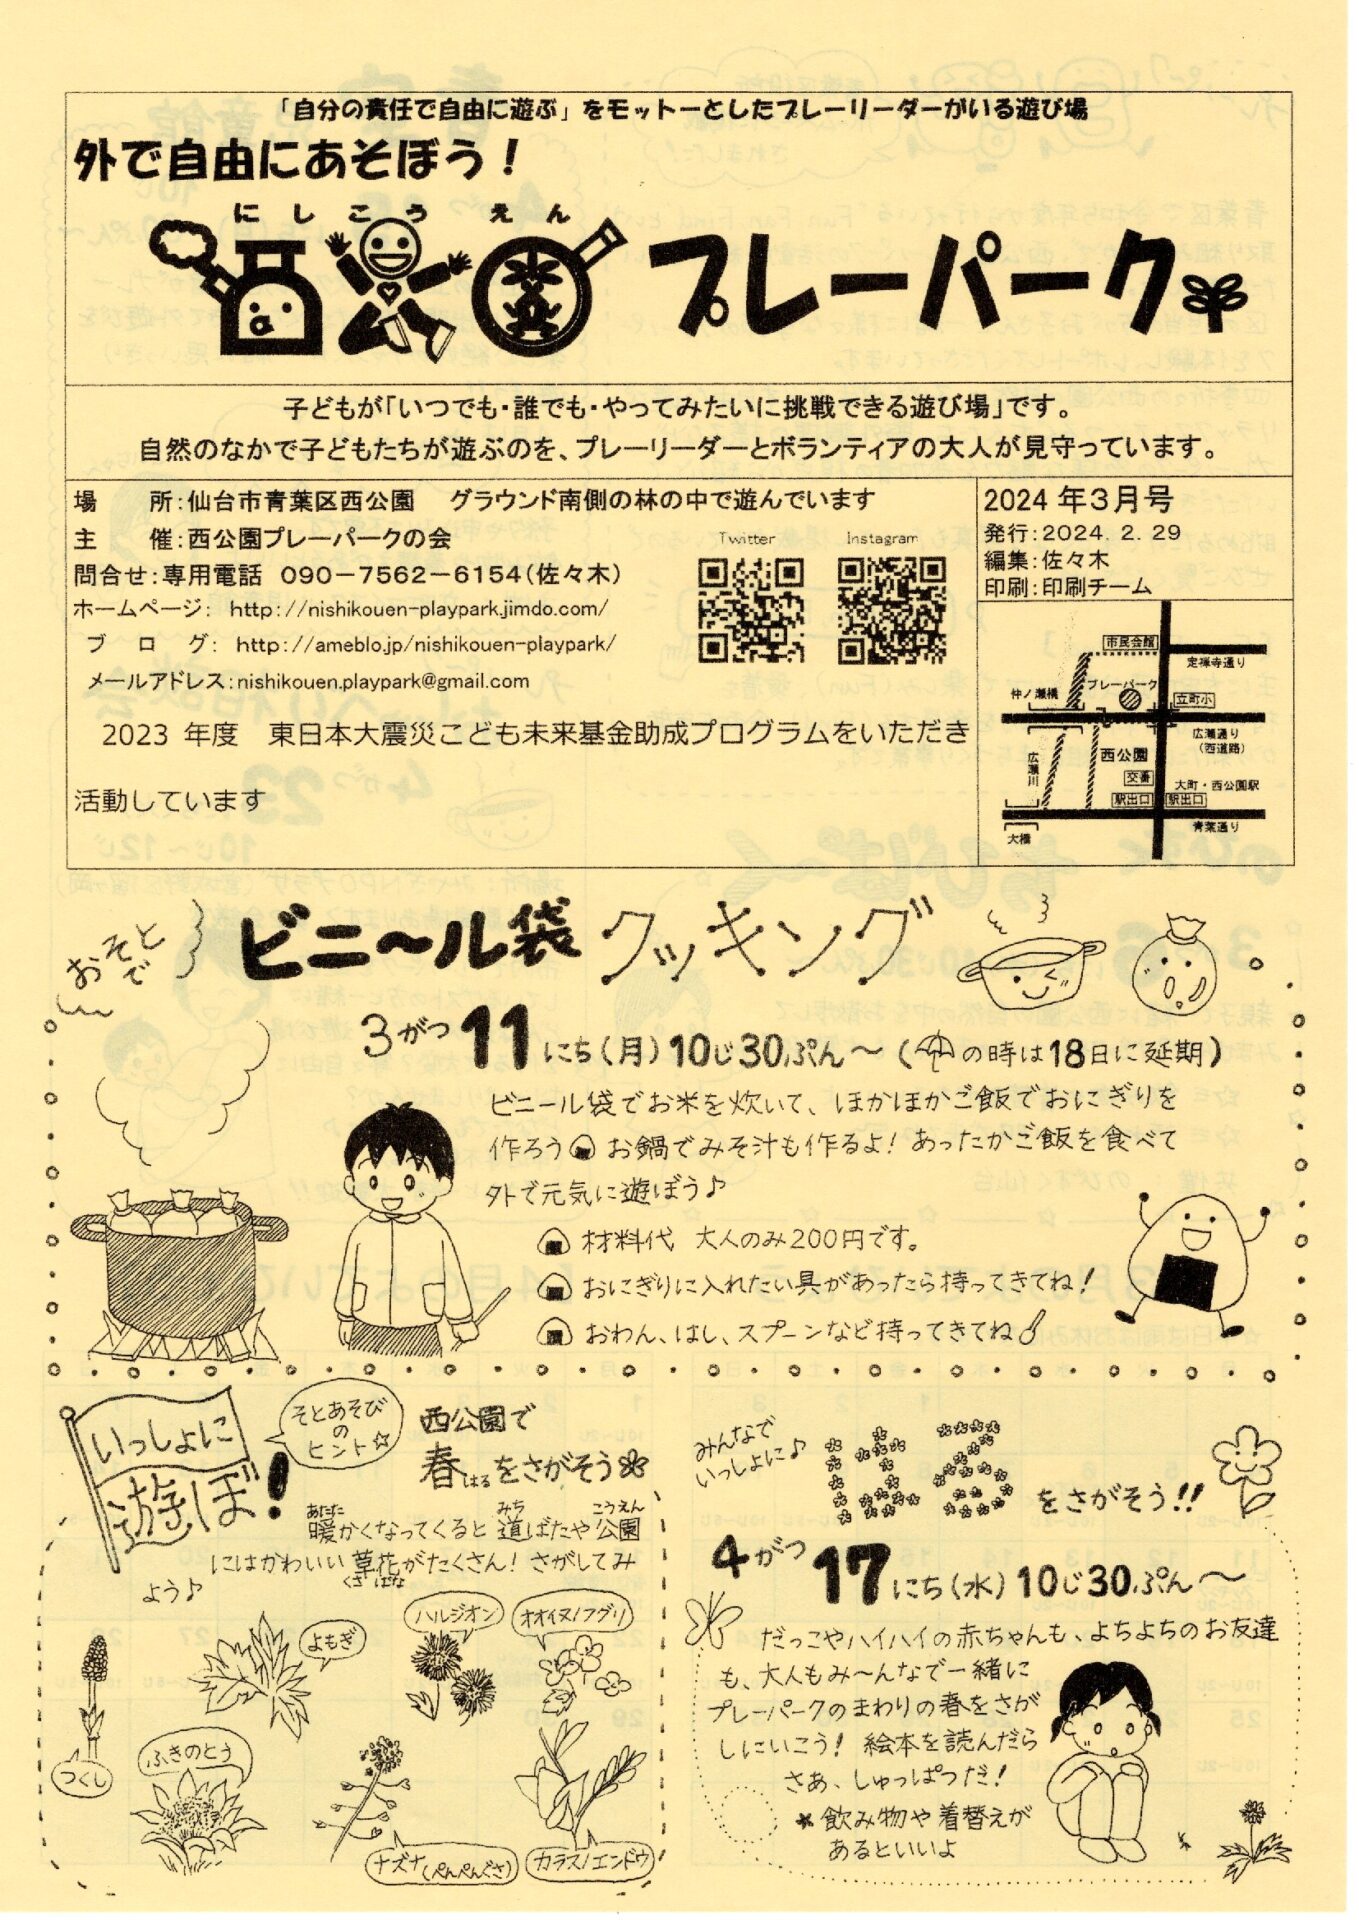 「自分の責任で自由に遊ぶ」をモットーとしたプレーリーダーがいる遊び場
外で自由にあそぼう！
にしこうえん
西公園プレーパーク
子どもが「いつでも・誰でも・やってみたいに挑戦できる遊び場」です。
自然のなかで子どもたちが遊ぶのを、プレーリーダーとボランティアの大人が見守っています。
場　所：仙台市青葉区西公園　グラウンド南側の林の中で遊んでいます
主　催：西公園プレーパークの会
問合せ：専用電話　090－7562－6154（佐々木）
ホームページ： http://nishikouen-playpark.jimdo.com/
ブ ロ グ： http://ameblo.jp/nishikouen-playpark/
メールアドレス：nishikouen.playpark@gmail.com
Twitter
Instagram
2023 年度　東日本大震災こども未来基金助成プログラムをいただき
活動しています
2024 年３月号
発行：2024. 2. 29
編集：佐々木
印刷：印刷チーム
市民会館
定禅寺通り
仲ノ瀬橋
プレーパーク
立町小
広瀬通り
（西道路）
広瀬川
西公園
交番
大町・西公園駅
駅出口
駅出口
青葉通り
大橋
おそとで
ビニ～ル袋クッキング
3がつ11にち(月)10じ30ぷん～(の時は18日に延期)
ビニール袋でお米を炊いて、ほかほかご飯でおにぎりを
作ろう お鍋でみそ汁も作るよ! あったかご飯を食べて
外で元気に遊ぼう♪
材料代 大人のみ200円です。
おにぎりに入れたい具があったら持ってきてね!
おわん、はし、スプーンなど持ってきてね
いっしょに
遊ぼ!
そとあそび
の
ヒント☆
西公園で
春をさがそう
はる
あたた みち こうえん
暖かくなってくると 道ばたや 公園
にはかわいい 草花がたくさん! さがしてみ
くさばな
よう♪
つくし
よもぎ
ハルジオン
オオイヌノフグリ
ふきのとう
ナズナ(ぺんぺんぐさ)
カラスノエンドウ
みんなで
いっしょに♪
はるをさがそう!!
4がつ17にち(水)10じ30ぷん～
だっこやハイハイの赤ちゃんも、よちよちのお友達
も、大人もみ～んなで一緒に
プレーパークのまわりの春をさが
しにいこう! 絵本を読んだら
さあ、しゅっぱつだ!
★飲み物や着替えが
あるといいよ